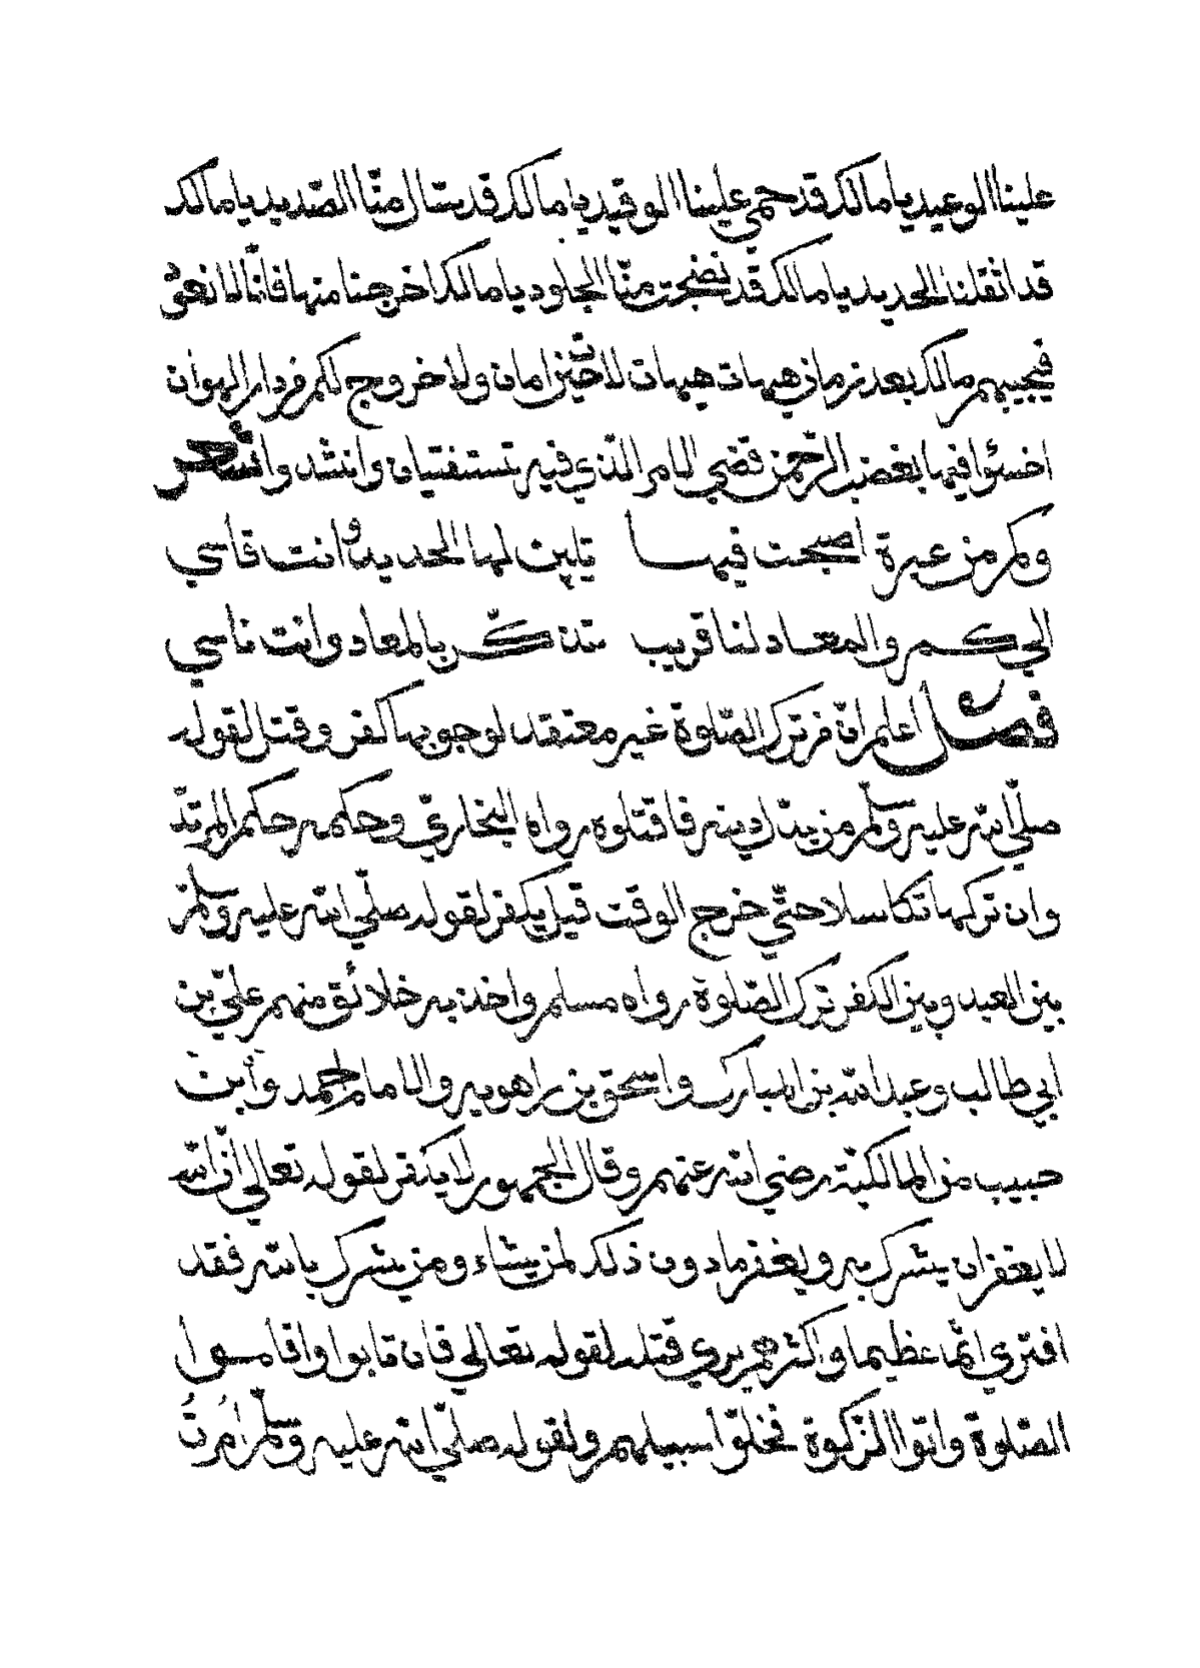 علينا الوعيد يا مالك قد حمي علينا الوقيد يا مالك قد سال منّا الصّديد يا مالك
قد اثقلنا الحديد يا مالك قد نضجت منّا الجلود يا مالك اخرجنا منها فانّا لا نعود
فيجيبهم مالك بعد زمان هيهات هيهات لات حين امان ولا خروج لكم من دار الهوان
اخسئوا فيها بغضب الرّحمن قضي الامر الذي فيه تستفتيان وانشد وا شعر
وكم من عبرة اصبحت فيها يلين لها الحديد وانت قاسي
الي كم والمعاد لنا قريب تذكّر بالمعاد وانت ناسي
فصل اعلم انّ من ترك الصّلوة غير معتقد لوجوبها كفر وقتل لقوله
صلّي الله عليه وسلّم من بدّل دينه فاقتلوه رواه البخاريّ وحكمه حكم المرتدّ
وان تركها تكاسلا حتّي خرج الوقت قيل يكفر لقوله صلّي الله عليه وسلّم
بين العبد وبين الكفر ترك الصّلوة رواه مسلم واخذ به خلائق منهم عليّ بن
ابي طالب وعبد الله بن المبارك واسحق بن راهويه والامام احمد وابن
حبيب من المالكيّة رضي الله عنهم وقال الجمهور لا يكفر لقوله تعالي انّ الله
لا يغفر ان يشرك به ويغفر ما دون ذلك لمن يشاء ومن يشرك بالله فقد
افتري اثما عظيما واكثرهم يري قتله لقوله تعالي فان تابوا واقاموا
الصّلوة واتوا الزّكوة فخلّوا سبيلهم ولقوله صلّي الله عليه وسلّم اُمرتُ